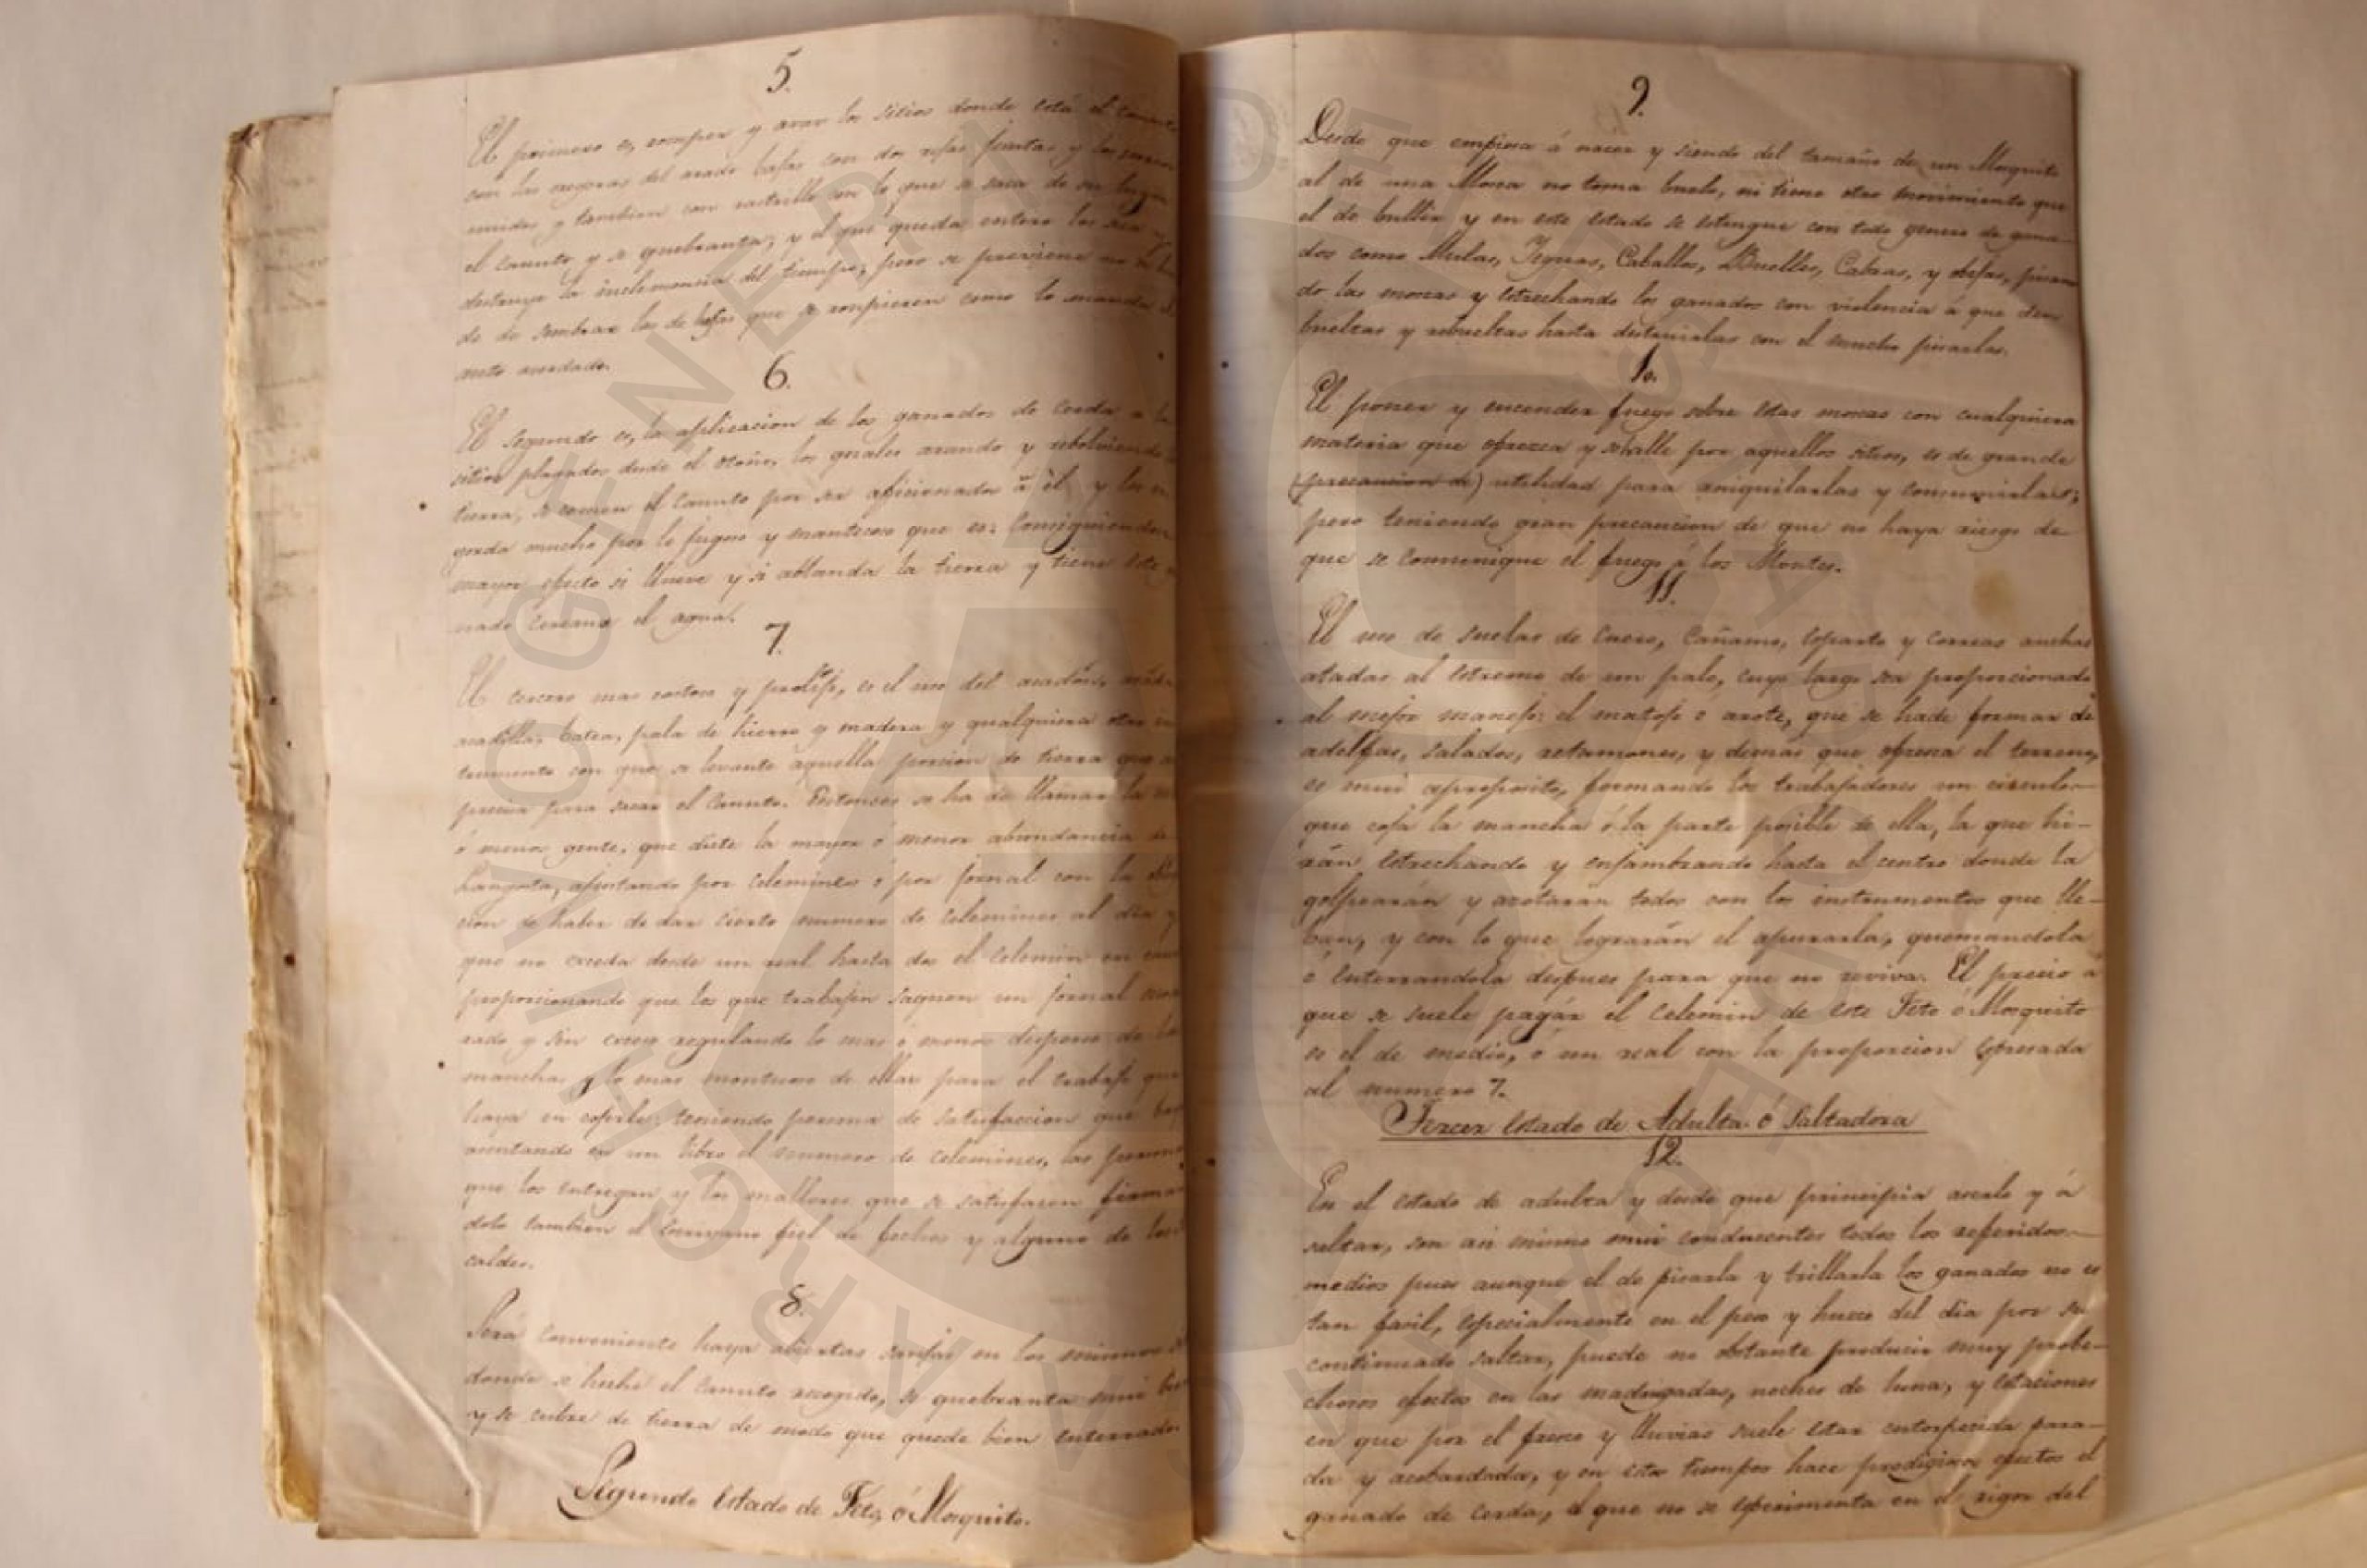 5.
El primero es, romper y arar los sitios donde está el canuto
con las orejeras del arado bajas con dos rejas juntas y los surcos
unidos y tambien con rastrillo con lo que se saca de su lugar
el canuto y se quebranta; y el que queda entero los sea y
destruye la inclemencia del tiempo; pero se previene no se
de de sembrar los de hojas que se rompieron como lo manda el
auto acordado.
6.
El segundo es, la aplicacion de los ganados de Cerda a los
sitios plagados desde el otoño, los quales arando y rebolviendo la
tierra, se comen el Canuto por ser aficionados á él y los en
gorda mucho por lo jugoso y mantecoso que es: Consiguiendose
mayor efecto si llueve y si ablanda la tierra y tiene este ga
nado cercana el agua.
7.
El tercero mas costoso y prolijo, es el uso del azadon, azada
azadilla, barra, pala de hierro y madera y qualquiera otro ins
trumento con que se levante aquella porcion de tierra que es
precisa para sacar el Canuto. Entonces se ha de llamar la mas
ó menos gente, que dicte la mayor ó menor abundancia de
Langosta, ajustando por celemines ó por jornal con la obliga
cion de haber de dar cierto numero de celemines al dia y
que no exceda desde un real hasta dos el Celemin en
proporcionando que los que trabajen saquen un jornal mode
rado y sin exceso regulando lo mas ó menos disperso de la
mancha, y lo mas montuoso de ellas para el trabajo que
haya en cojerlo: teniendo persona de satisfaccion que baya
asentando en un libro el numero de celemines, las personas
que los entregan y los maravedises que se satisfacen firman
dolo tambien el Escrivano fiel de fechos y alguno de los Al
caldes.
8.
Será conveniente haya abiertas zanjas en los mismos
donde se heche el canuto recogido, se quebranta mui bien
y se cubre de tierra de modo que quede bien enterrado.
Segundo Estado de Feto, ó Mosquito.
9.
Desde que empieza á nacer y siendo del tamaño de un Mosquito
al de una Mosca no toma buelo, ni tiene otro movimiento que
el de bullir y en este estado se estingue con todo genero de gana-
dos como Mulas, Yeguas, Caballos, Buelles, Cabras, y obejas, pisan
do las moscas y estrechando los ganados con violencia á que den
bueltas y rebueltas hasta destruirlas con el mucho pisarlas.
10.
El poner y encender fuego sobre estas moscas con cualquiera
materia que ofrezca y se halle por aquellos sitios, es de grande
(precaucion de) utilidad para aniquilarlas y consumirlas;
pero teniendo gran precaucion de que no haya riesgo de
que se comunique el fuego á los Montes.
11.
El uso de suelas de Cuero, Cañamo, Esparto y Correas anchas
atadas al estremo de un palo, cuyo largo sea proporcionado
al mejor manejo: el matojo ó azote, que se hade formar de
adelfas, salados, retamones, y demas que ofrezca el terreno,
es mui aproposito, formando los trabajadores un circulo-
que coja la mancha ó la parte posible de ella, la que hi-
rán Estrechando y enjambrando hasta el centro donde la
golpearán y azotarán todos con los instrumentos que lle-
ban, y con lo que lograrán el apurarla, quemandola
ó Enterrandola despues para que no reviva. El precio á
que se suele pagár el Celemin de este Feto ó Mosquito
es el de medio, ó un real con la proporcion Espresada
al numero 7.
Tercer Estado de Adulta ó Saltadora
12.
En el Estado de adulta y desde que principia á buelo y á
saltar, son asi mismo mui conducentes todos los referidos-
medios pues aunque el de pisarla y trillarla los ganados no es
tan facil, Especialmente en el peso y hueco del dia por su
continuado saltar, puede no obstante producir muy probe-
chosos efectos en las madrugadas, noches de luna, y Estaciones
en que por el fresco y lluvias suele estar entorpecida para-
da y acobardada, y en estos tiempos hace prodigiosos efectos el
ganado de Cerda, lo que no se Esperimenta en el rigor del
ARCHIVO GENERAL DEL ESTADO DE OAXACA